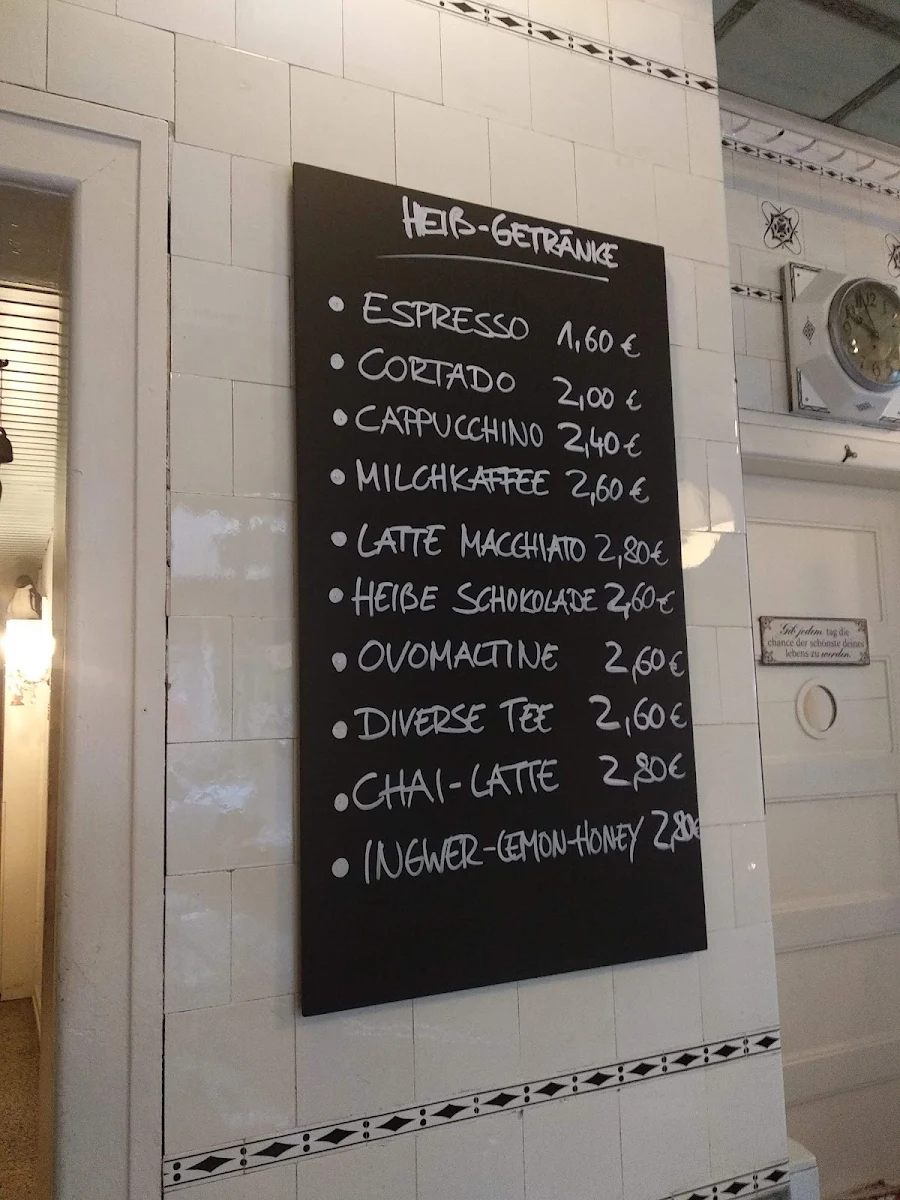 HEIß-GETRÄNKE
• ESPRESSO 1,60 €
• CORTADO 2,00 €
• CAPPUCCHINO 2,40 €
• MILCHKAFFEE 2,60 €
• LATTE MACCHIATO 2,80€
• HEIßE SCHOKOLADE 2,60€
• OVOMALTINE 2,60€
• DIVERSE TEE 2,60€
• CHAI-LATTE 2,80€
• INGWER-LEMON-HONEY 2,80€
Gib jedem tag die
chance der schönste deines
lebens zu werden.